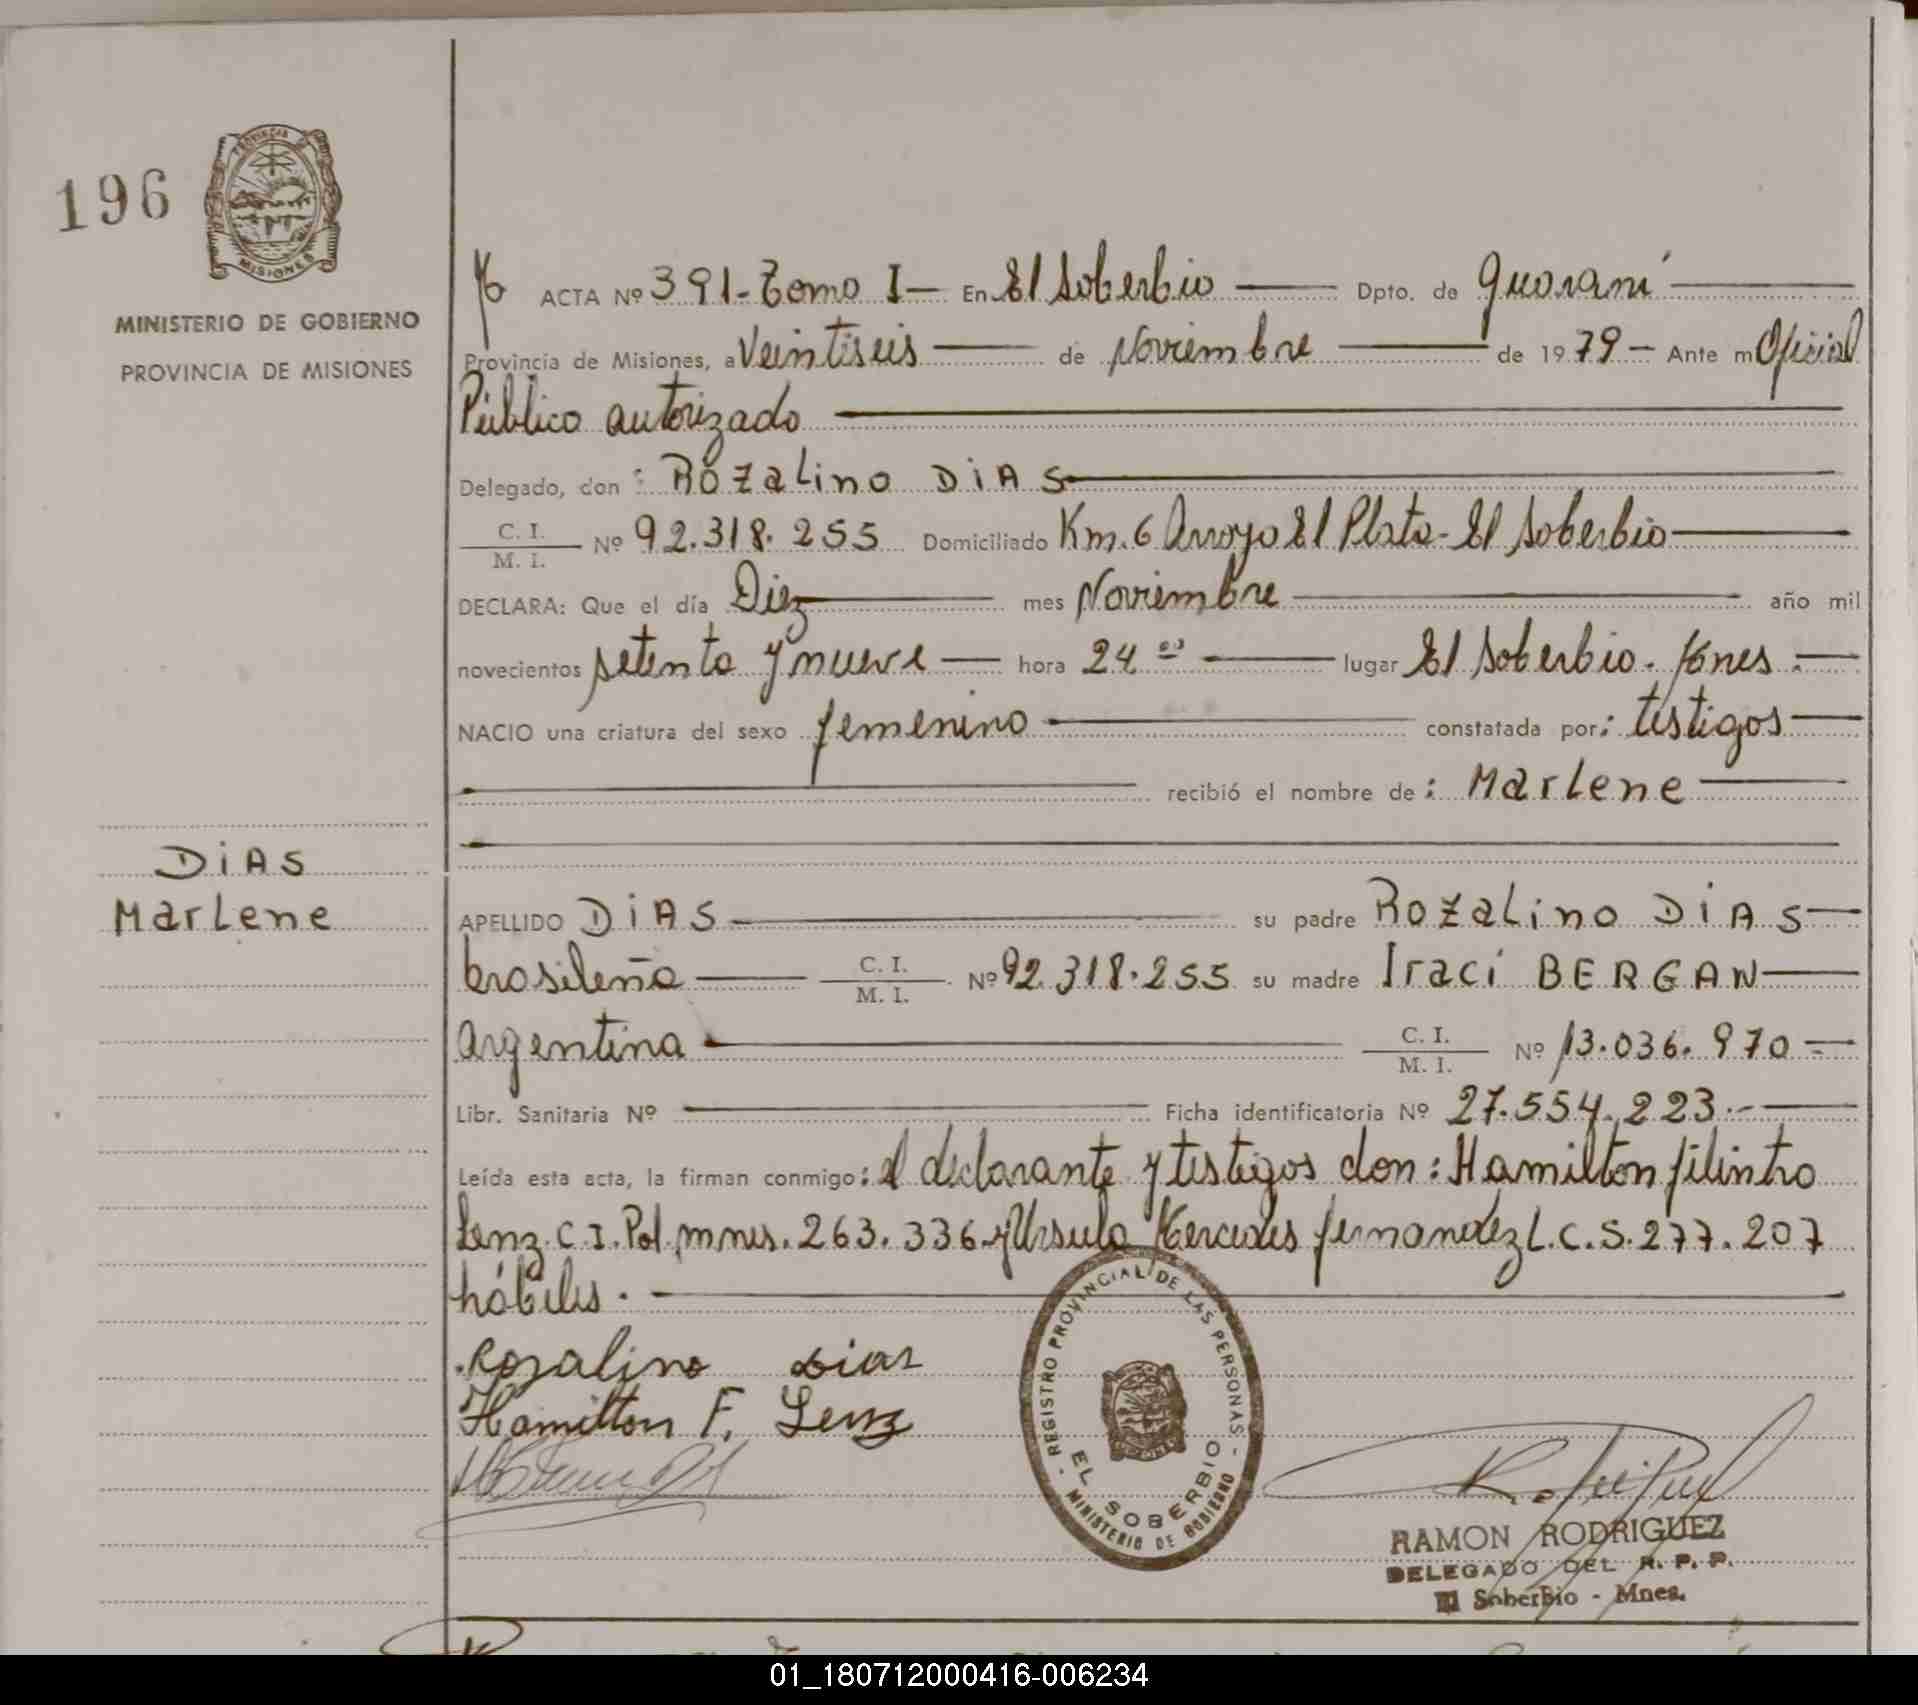 196
PROVINCIA DE
MISIONES
MINISTERIO DE GOBIERNO
PROVINCIA DE MISIONES
ACTA Nº 391-Tomo I- En El Soberbio Dpto. de Guaraní
Provincia de Misiones, a Veintiseis de Noviembre de 1979- Ante mí Oficial
Público autorizado
Delegado, don: Rozalino DiAS
C. I.
M. I. Nº 92.318.255 Domiciliado Km. 6 Arroyo El Plata- El Soberbio
DECLARA: Que el día Diez mes Noviembre año mil
novecientos setenta y nueve hora 24 lugar El Soberbio. Mnes.
NACIO una criatura del sexo femenino constatada por: testigos
recibió el nombre de: Marlene
DiAS
Marlene
APELLIDO DiAS su padre Rozalino DiAS
brasileña C. I.
M. I. Nº 92.318.255 su madre Iraci BERGAN
argentina C. I.
M. I. Nº 13.036.970
Libr. Sanitaria Nº Ficha identificatoria Nº 27.554.223.-
Leída esta acta, la firman conmigo: el declarante y testigos don: Hamilton filintro
Lenz C.I. Pol. mnes. 263.336 y Ursula Mercedes fernandez L.C. 5.277.207
hábiles.
Rozalino Dias
Hamilton F. Lenz
- REGISTRO PROVINCIAL DE LAS PERSONAS -
EL SOBERBIO
MINISTERIO DE GOBIERNO
RAMON RODRIGUEZ
DELEGADO DEL R. P. P.
El Soberbio - Mnes.
01_180712000416-006234